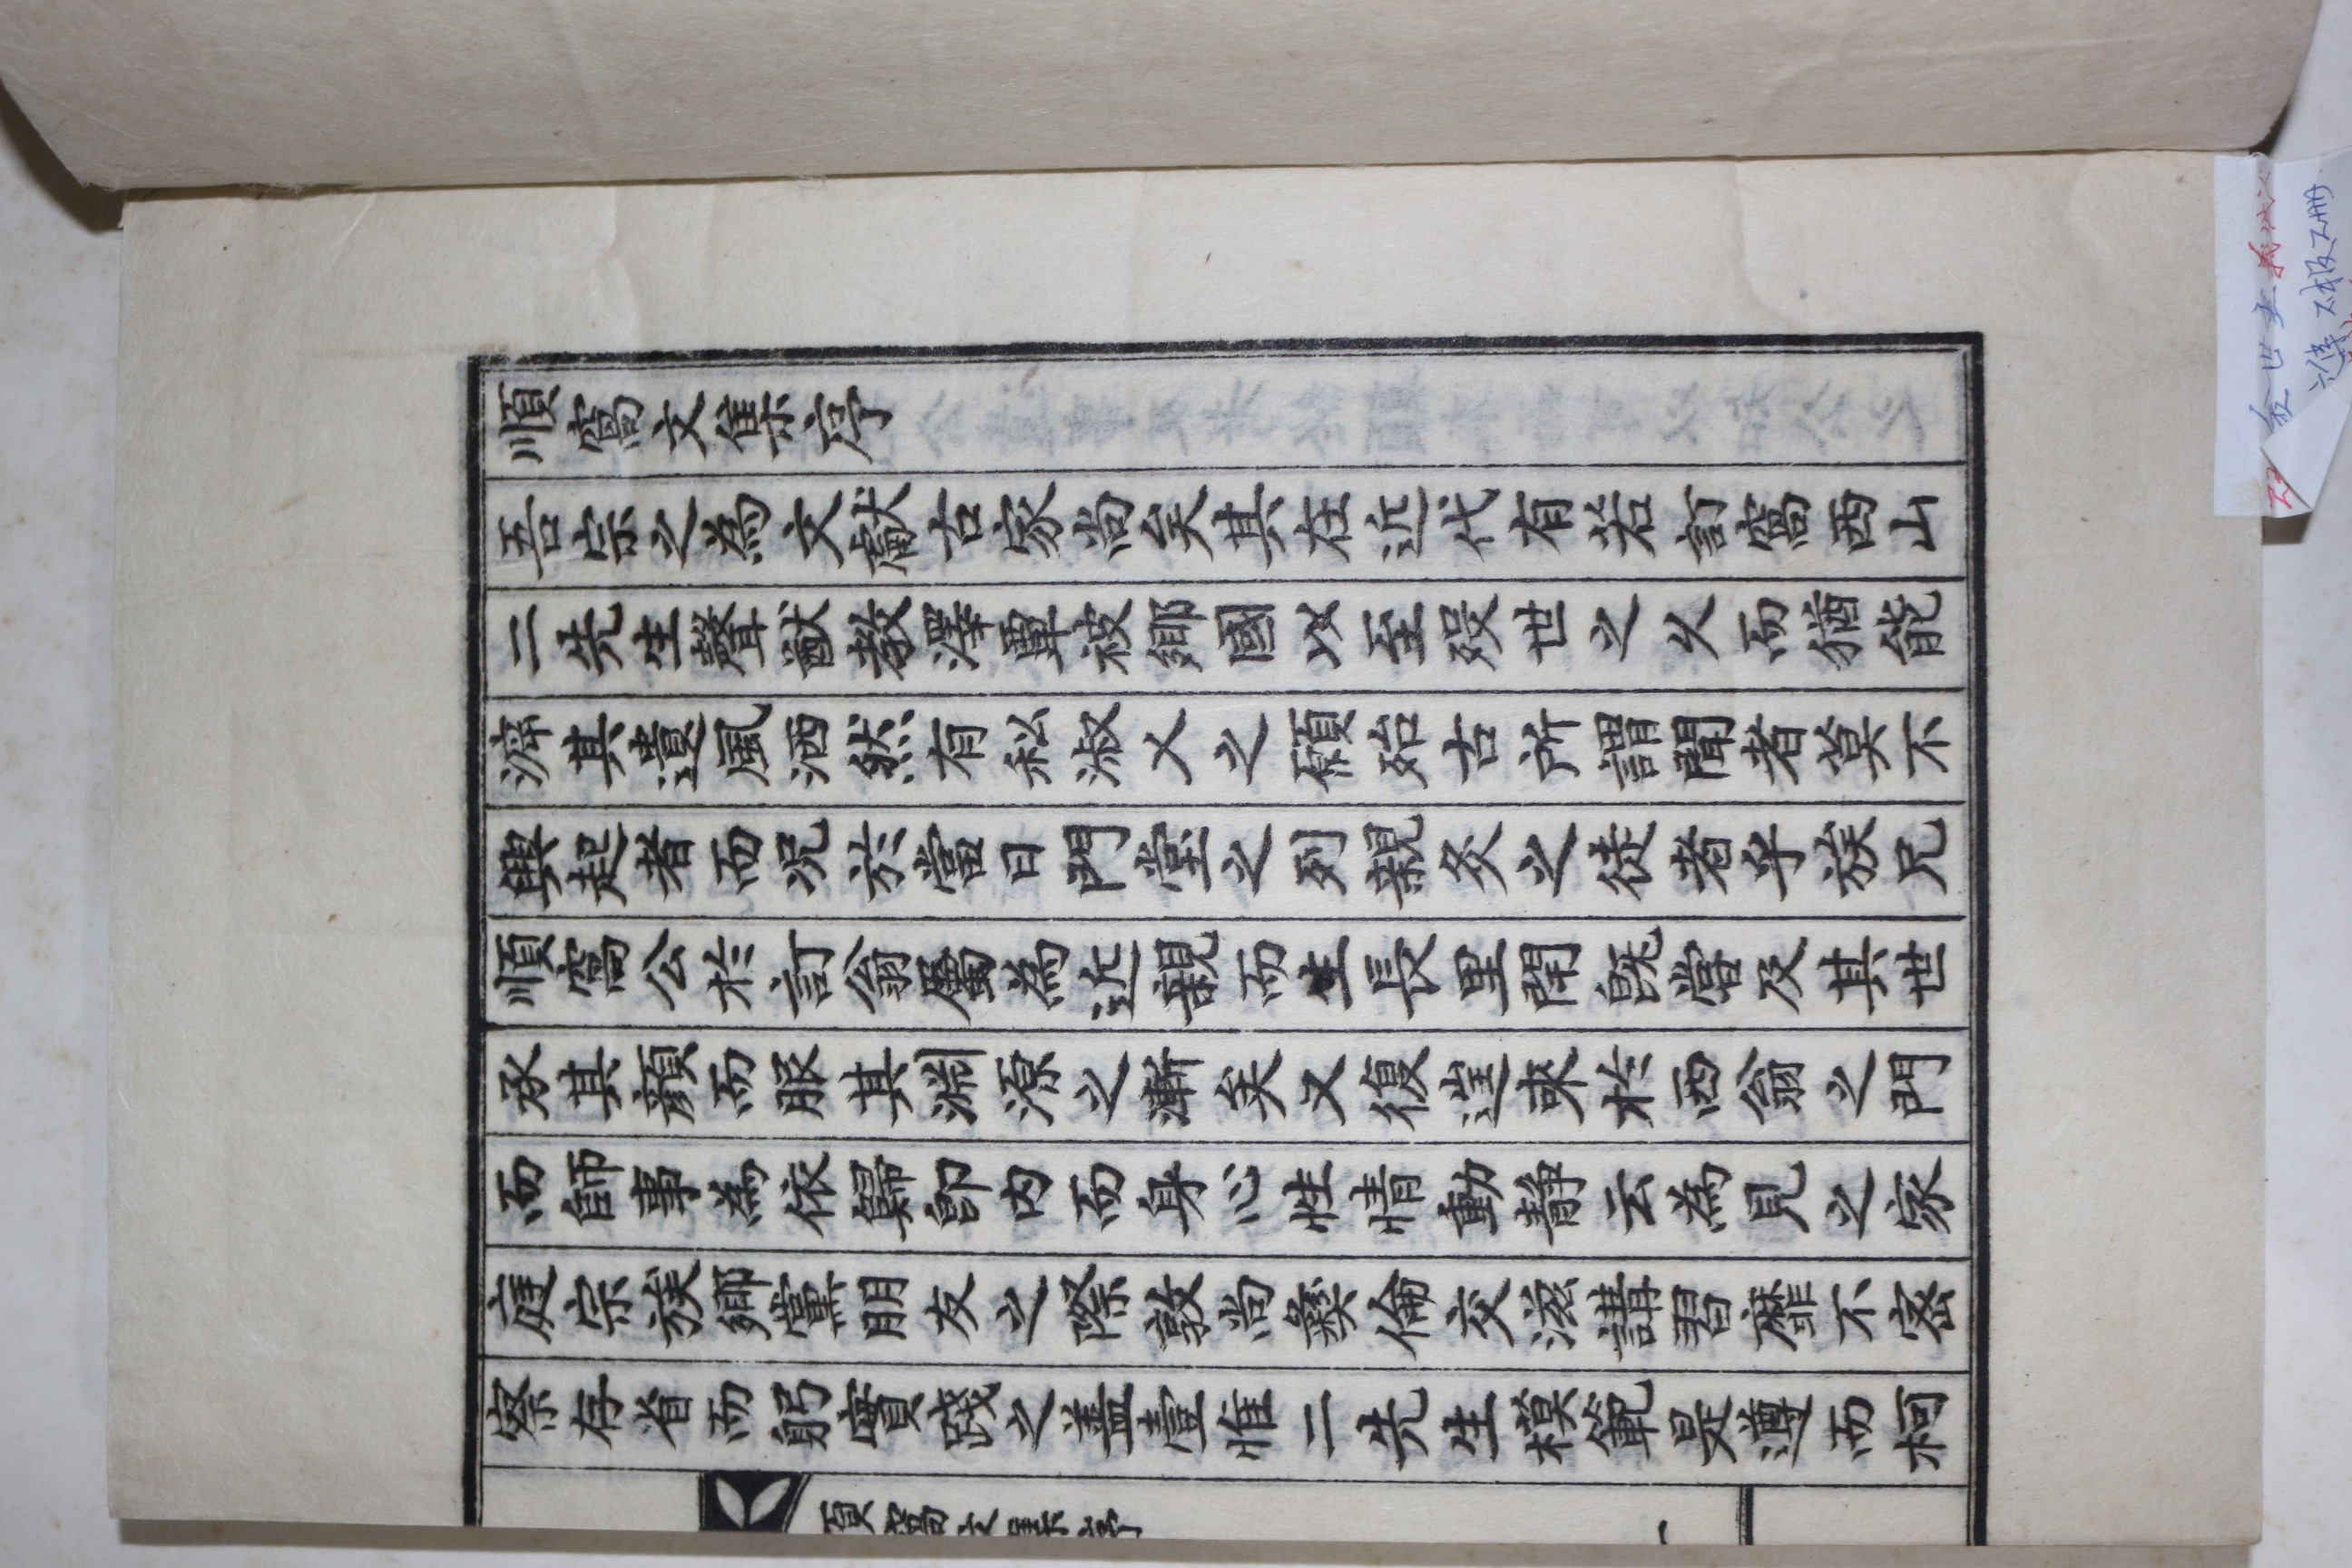 順窩文集序
吾宗之為文獻古家尚矣其在近代有若訂窩西山
二先生聲猷教澤覃被鄉國以至歿世之久而猶能
滓其遺風洒然有私淑乂之願殆古所謂聞者莫不
興起者而況於當日門堂之列親炙之徒者乎族兄
順窩公於訂翁屬為近親而生長里閈旣嘗及其世
承其顔而服其淵源之漸矣又復𨓏來於西翁之門
而師事為依歸卽內而身心性情動靜云為見之家
庭宗族鄉黨朋友之際敦尚彝倫交滋講習靡不密
察存省而躬實踐之蓋壹惟二先生模範是遵而柯
順窩文集序
一